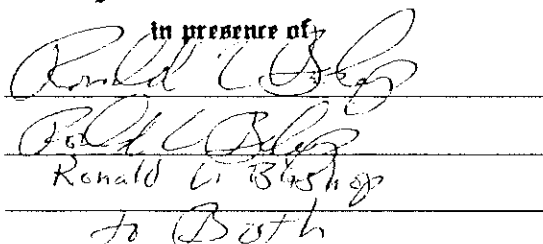 in presence of
Ronald L. Bishop
Ronald L Bishop
Ronald L. Bishop
to Both